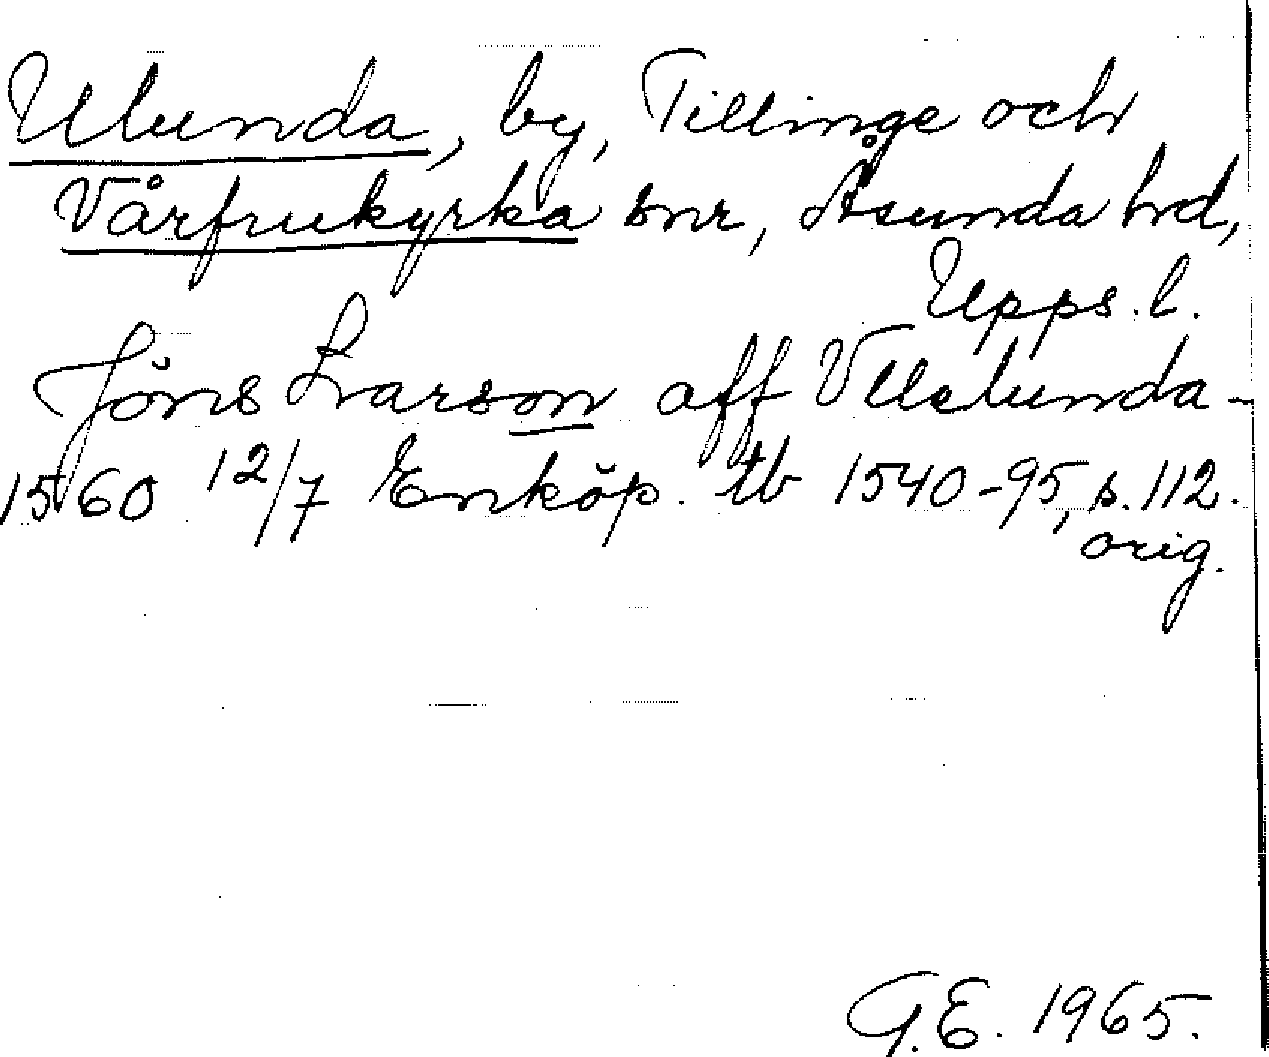 Ulunda, by, Tillinge och
Vårfrukyrka snr, Åsunda hd,
Upps. l.
Jöns Larson aff Vllelunda -
1560 12/7 Enköp. tb 1540-95, s. 112.
orig.
G.E. 1965.